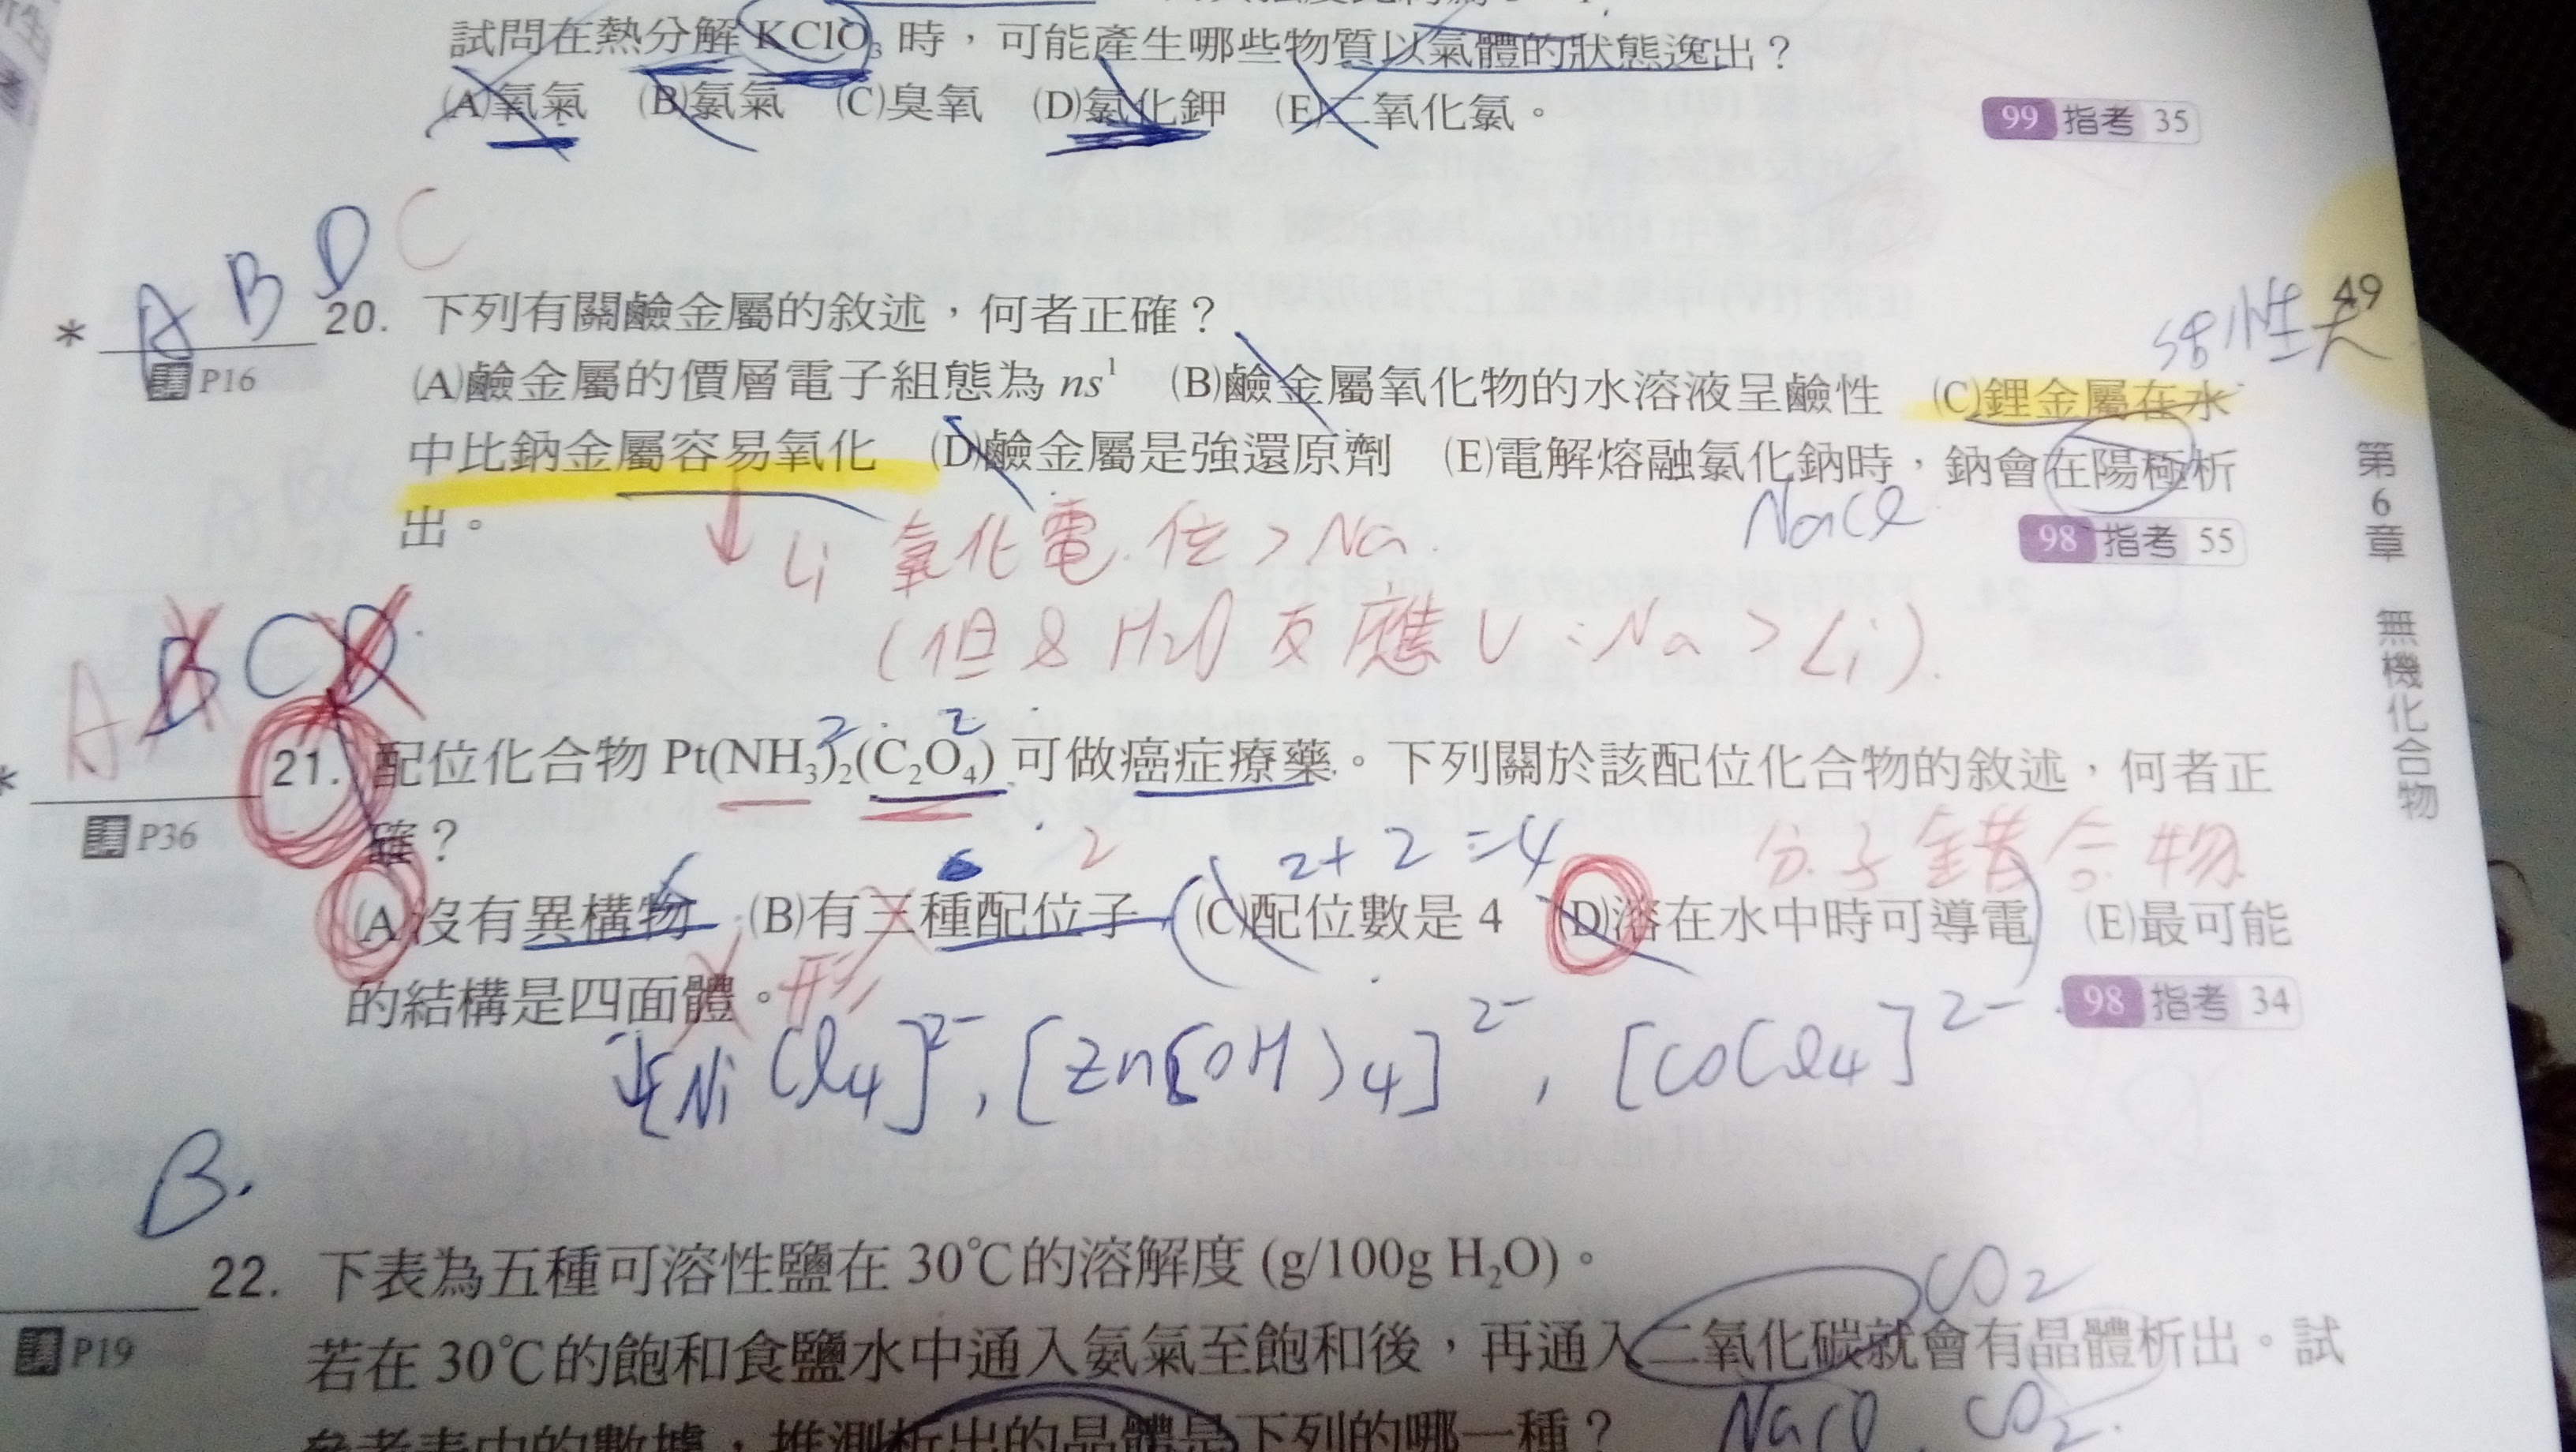 試問在熱分解 KClO₃ 時，可能產生哪些物質以氣體的狀態逸出？
(A)氧氣 (B)氯氣 (C)臭氧 (D)氯化鉀 (E)二氧化氯。
99 指考 35
A B D C
49
20. 下列有關鹼金屬的敘述，何者正確？
活性大
* 講 P16
(A)鹼金屬的價層電子組態為 ns¹ (B)鹼金屬氧化物的水溶液呈鹼性 (C)鋰金屬在水
中比鈉金屬容易氧化 (D)鹼金屬是強還原劑 (E)電解熔融氯化鈉時，鈉會在陽極析
出。
NaCl
98 指考 55
↓ Li 氧化電位 > Na.
(但 & H₂O 反應 V : Na > Li).
第6章 無機化合物
A B C D
2 2
* 21. 配位化合物 Pt(NH₃)₂(C₂O₄) 可做癌症療藥。下列關於該配位化合物的敘述，何者正
確？
講 P36
6 2 2+2=4 分子錯合物
(A)沒有異構物 (B)有三種配位子 (C)配位數是 4 (D)溶在水中時可導電 (E)最可能
的結構是四面體。
形
98 指考 34
[NiCl₄]²⁻, [Zn(OH)₄]²⁻, [CoCl₄]²⁻
B.
22. 下表為五種可溶性鹽在 30℃的溶解度 (g/100g H₂O)。
CO₂
講 P19
若在 30℃的飽和食鹽水中通入氨氣至飽和後，再通入二氧化碳就會有晶體析出。試
參考表中的數據，推測析出的晶體是下列的哪一種？
NaCl, CO₂.